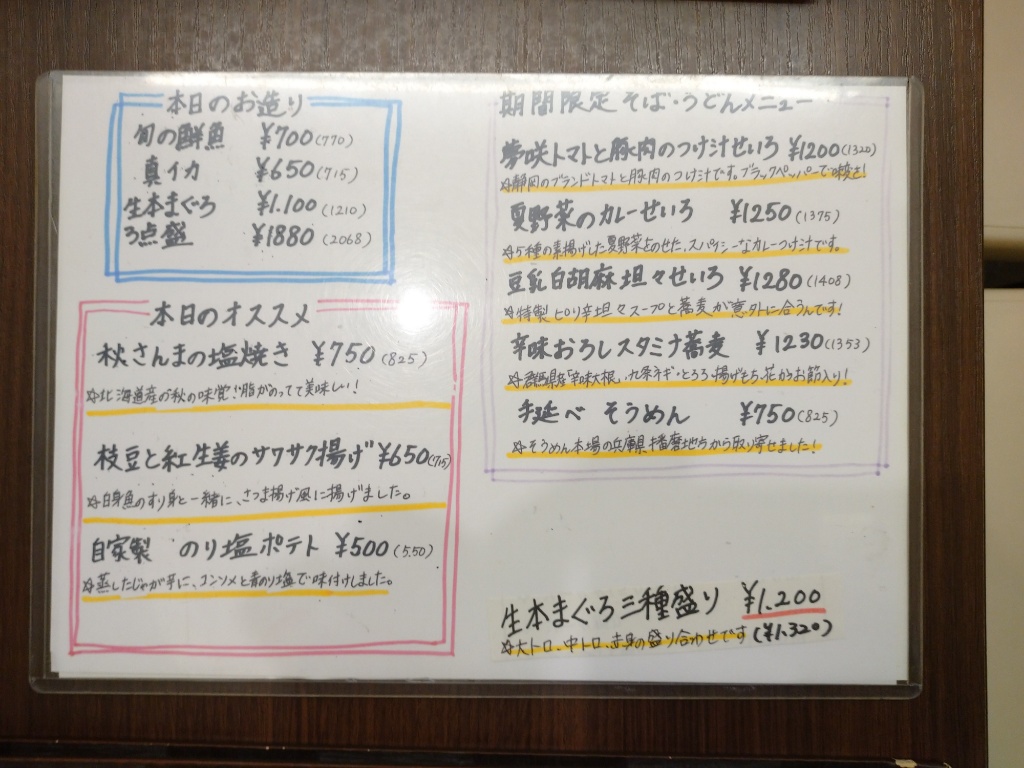 本日のお造り
旬の鮮魚 ¥700(770)
真イカ ¥650(715)
生本まぐろ ¥1.100(1210)
3点盛 ¥1880(2068)
本日のオススメ
秋さんまの塩焼き ¥750(825)
☆北海道産の秋の味覚!脂がのってて美味しい!
枝豆と紅生姜のサクサク揚げ ¥650(715)
☆白身魚のすり身と一緒に、さつま揚げ風に揚げました。
自家製 のり塩ポテト ¥500(5.50)
☆蒸したじゃが芋に、コンソメと青のり塩で味付けしました。
期間限定そば・うどんメニュー
夢咲トマトと豚肉のつけ汁せいろ ¥1200(1320)
☆静岡のブランドトマトと豚肉のつけ汁です。ブラックペッパーで味変を!
夏野菜のカレーせいろ ¥1250(1375)
☆5種の素揚げした夏野菜をのせた、スパイシーなカレーつけ汁です。
豆乳白胡麻坦々せいろ ¥1280(1408)
☆特製ピリ辛坦々スープと蕎麦が意外に合うんです!
辛味おろしスタミナ蕎麦 ¥1230(1353)
☆群馬県産「辛味大根」、九条ネギ・とろろ・揚げもち・花かつお節入り!
手延べ そうめん ¥750(825)
☆そうめん本場の兵庫県播磨地方から取り寄せました!
生本まぐろ三種盛り ¥1.200
☆大トロ、中トロ、赤身の盛り合わせです(¥1.320)